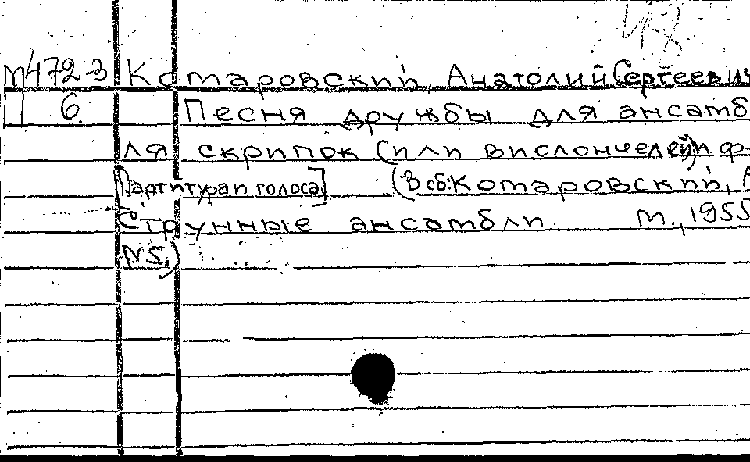 М472-3 Комаровский, Анатолий Сергеевич
П 6 Песня дружбы для ансамб
ля скрипок (или виолончелей) и ф-
[Партитура и голоса] (В сб: Комаровский, А
Струнные ансамбли. М., 1955
№5.)